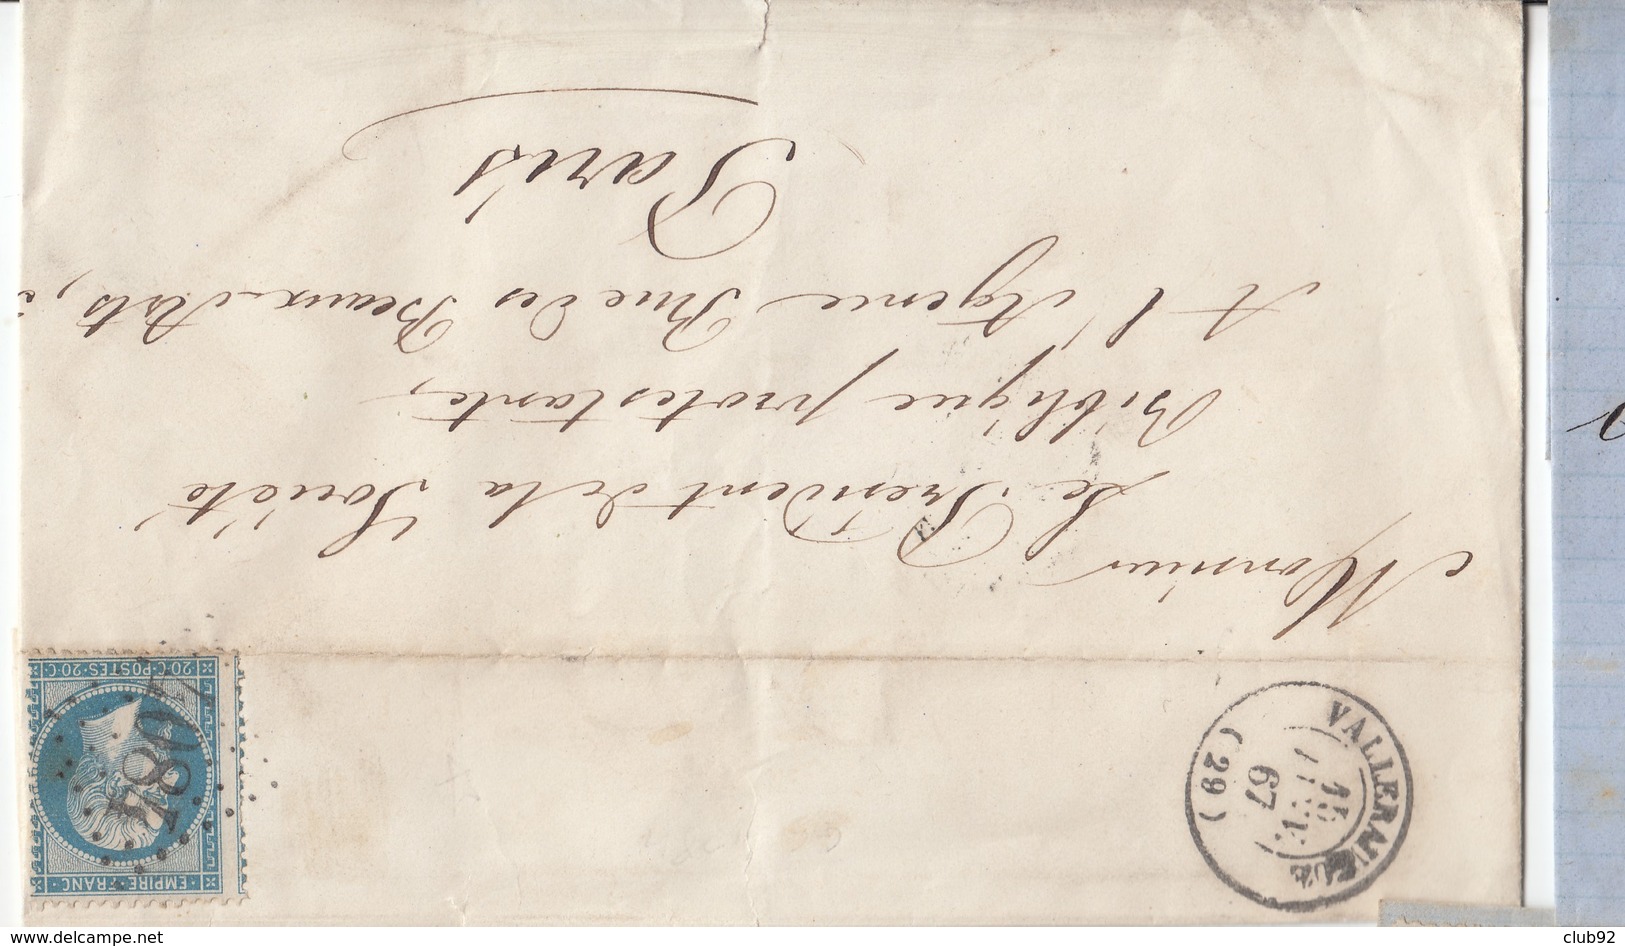 Monsieur
Le Président de la Société
Biblique protestante,
A l'Agence Rue des Beaux-Arts,
Paris
EMPIRE FRANC
20·C·POSTES·20·C·
VALLERAUGUE
67
(29)
www.delcampe.net
club92